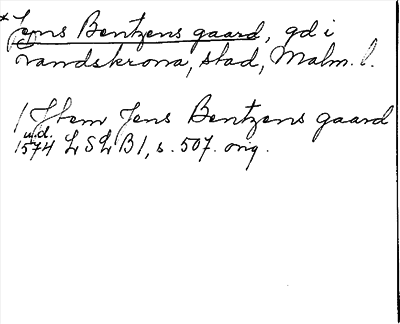 *Jens Bentzens gaard, gd i
Landskrona, stad, Malm. l.
1 Jtem Jens Bentzens gaard
u.d.
1574 LSLB 1, s. 507. orig.